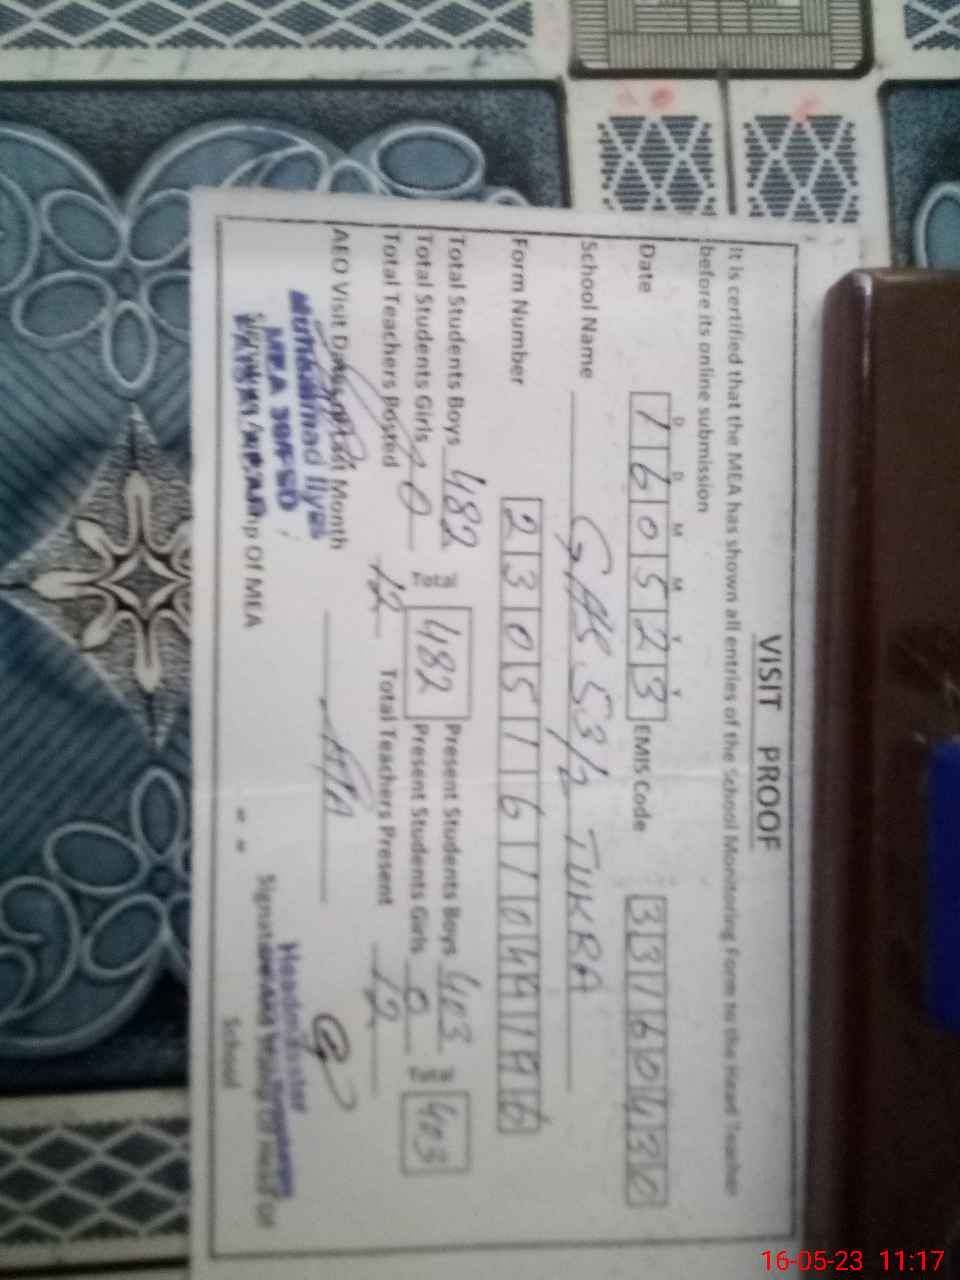 VISIT PROOF
It is certified that the MEA has shown all entries of the School Monitoring Form to the Head Teacher
before its online submission
D D M M Y Y
Date 160523 EMIS Code 33160430
School Name GHS 53/2 TUKRA
Form Number
Total Students Boys 482 Total 482 Present Students Boys 403 Total 403
Total Students Girls 0 Present Students Girls 0
Total Teachers Posted 12 Total Teachers Present 12
AEO Visit Month
Muhammad Ilyas
MEA
Of MEA
Headmaster
School
16-05-23 11:17